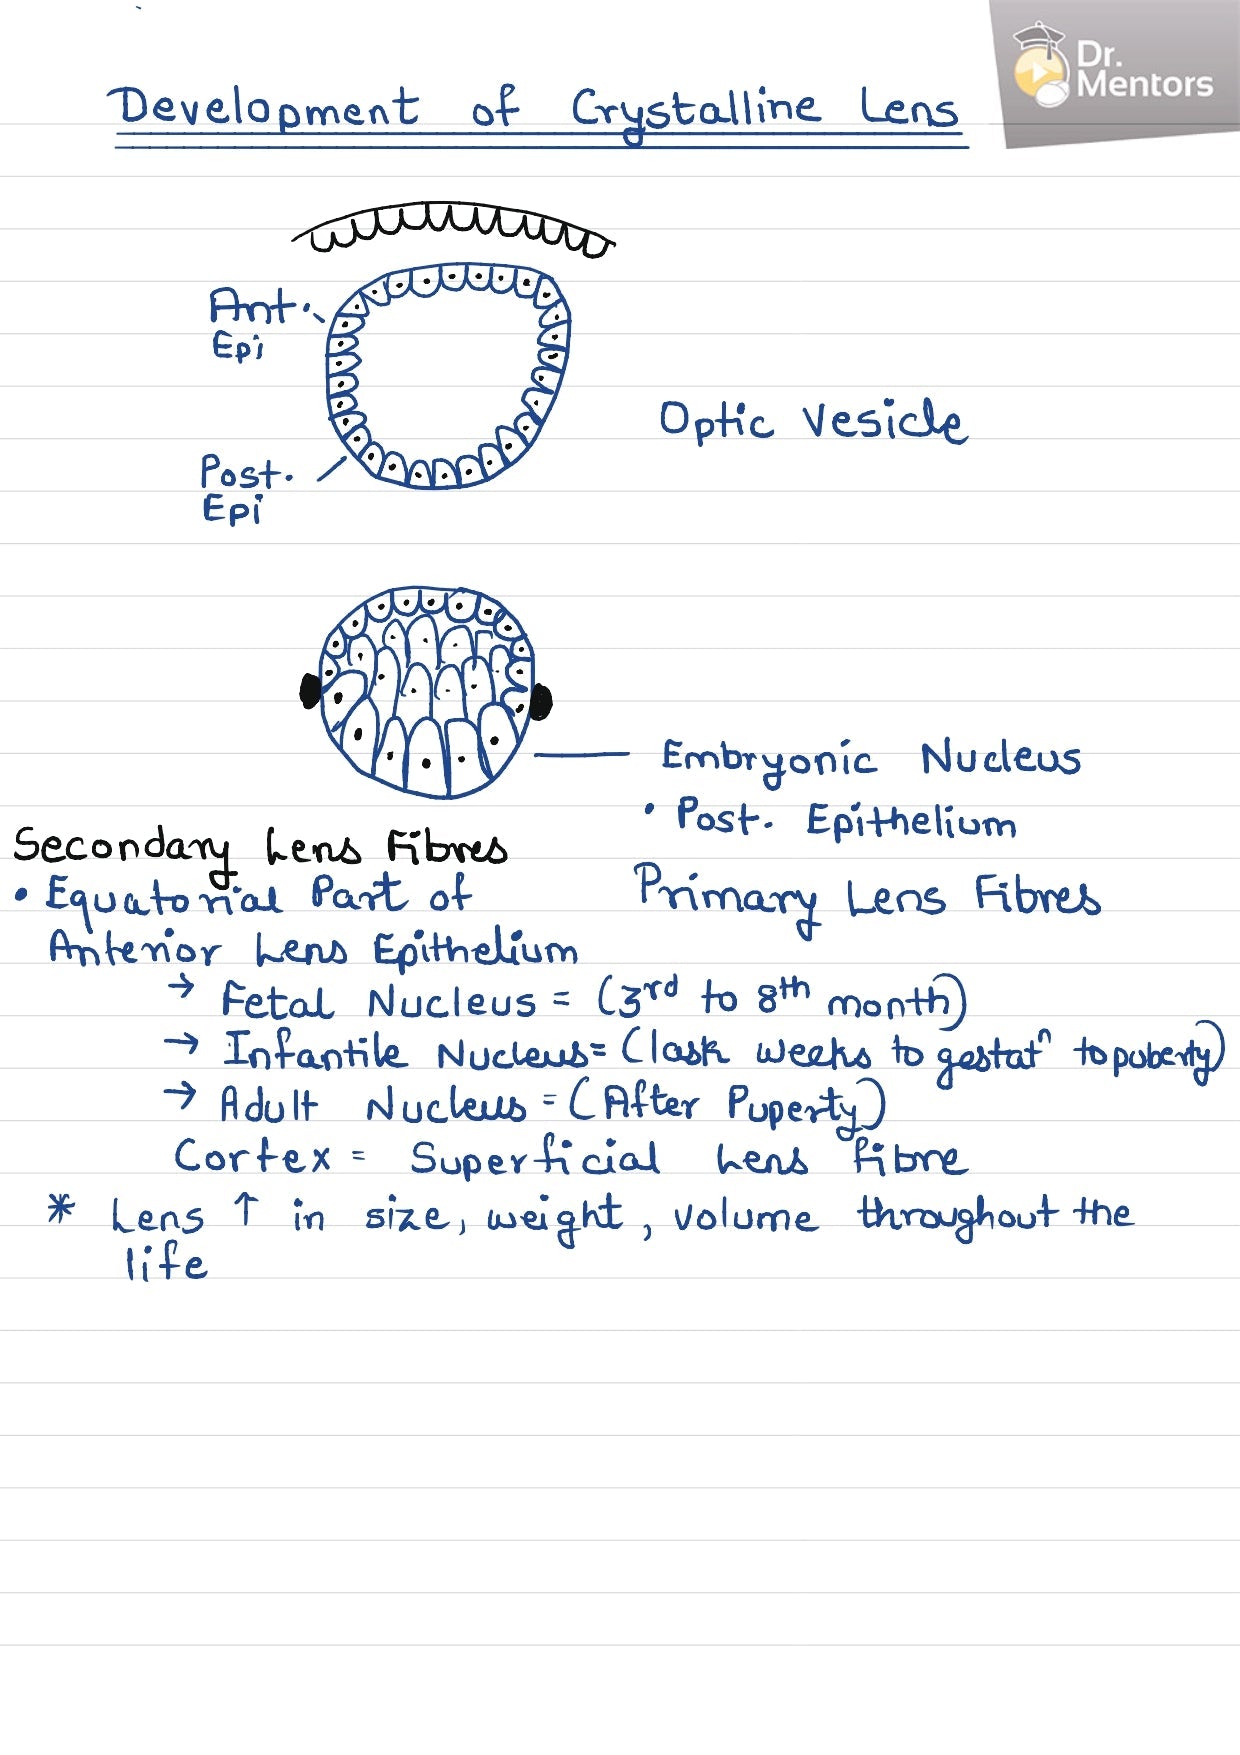 Dr.
Mentors
Development of Crystalline Lens
Ant.
Epi
Optic Vesicle
Post.
Epi
Embryonic Nucleus
• Post. Epithelium
Primary Lens Fibres
Secondary Lens Fibres
• Equatorial Part of
Anterior Lens Epithelium
→ Fetal Nucleus = (3rd to 8th month)
→ Infantile Nucleus = (lask weeks to gestatⁿ to puberty)
→ Adult Nucleus = (After Puperty)
Cortex = Superficial Lens fibre
* Lens ↑ in size, weight, volume throughout the
life